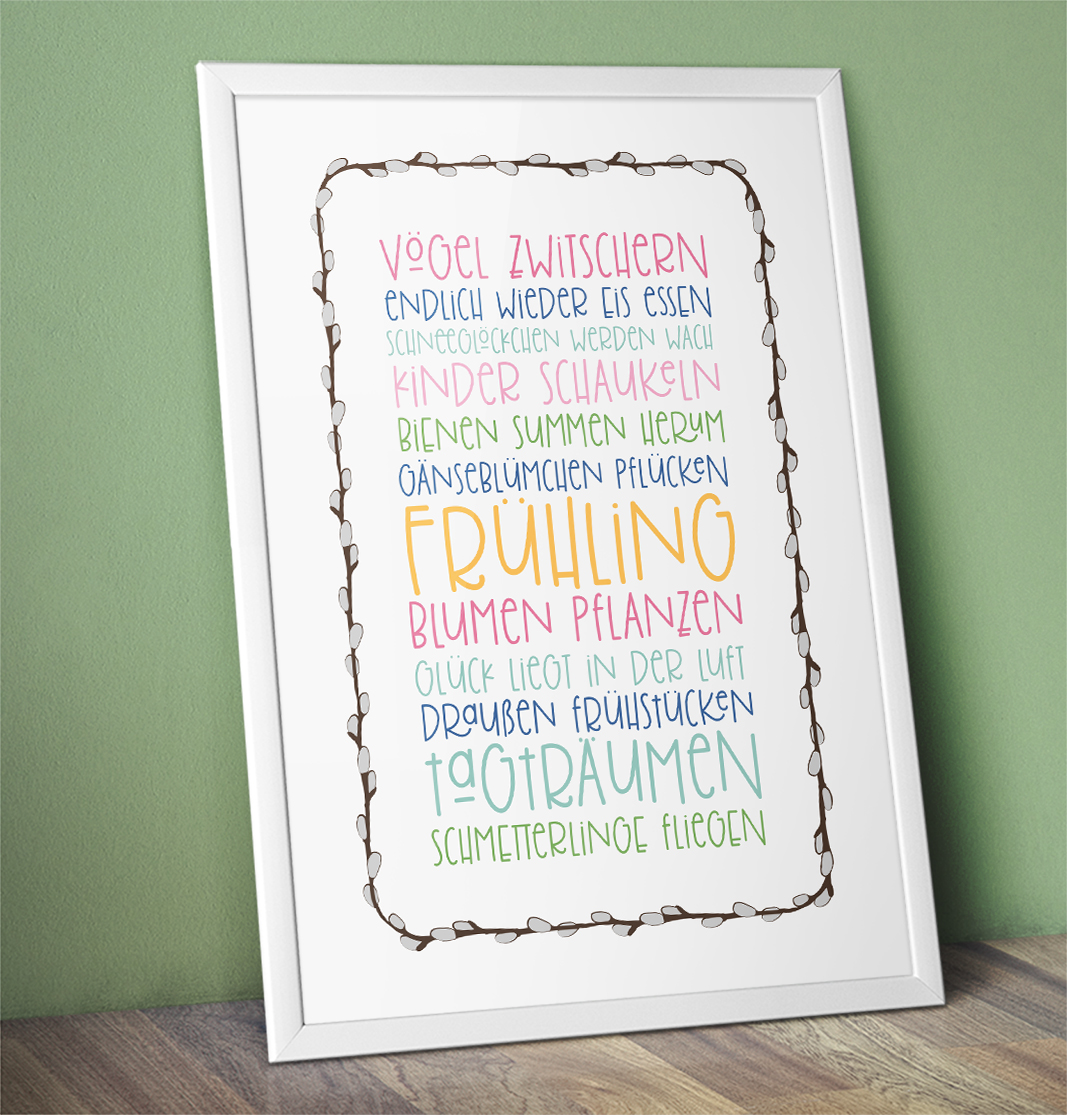 VÖGEL ZWITSCHERN
ENDLICH WIEDER EIS ESSEN
SCHNEEGLÖCKCHEN WERDEN WACH
KINDER SCHAUKELN
BIENEN SUMMEN HERUM
GÄNSEBLÜMCHEN PFLÜCKEN
FRÜHLING
BLUMEN PFLANZEN
GLÜCK LIEGT IN DER LUFT
DRAUßEN FRÜHSTÜCKEN
TAGTRÄUMEN
SCHMETTERLINGE FLIEGEN